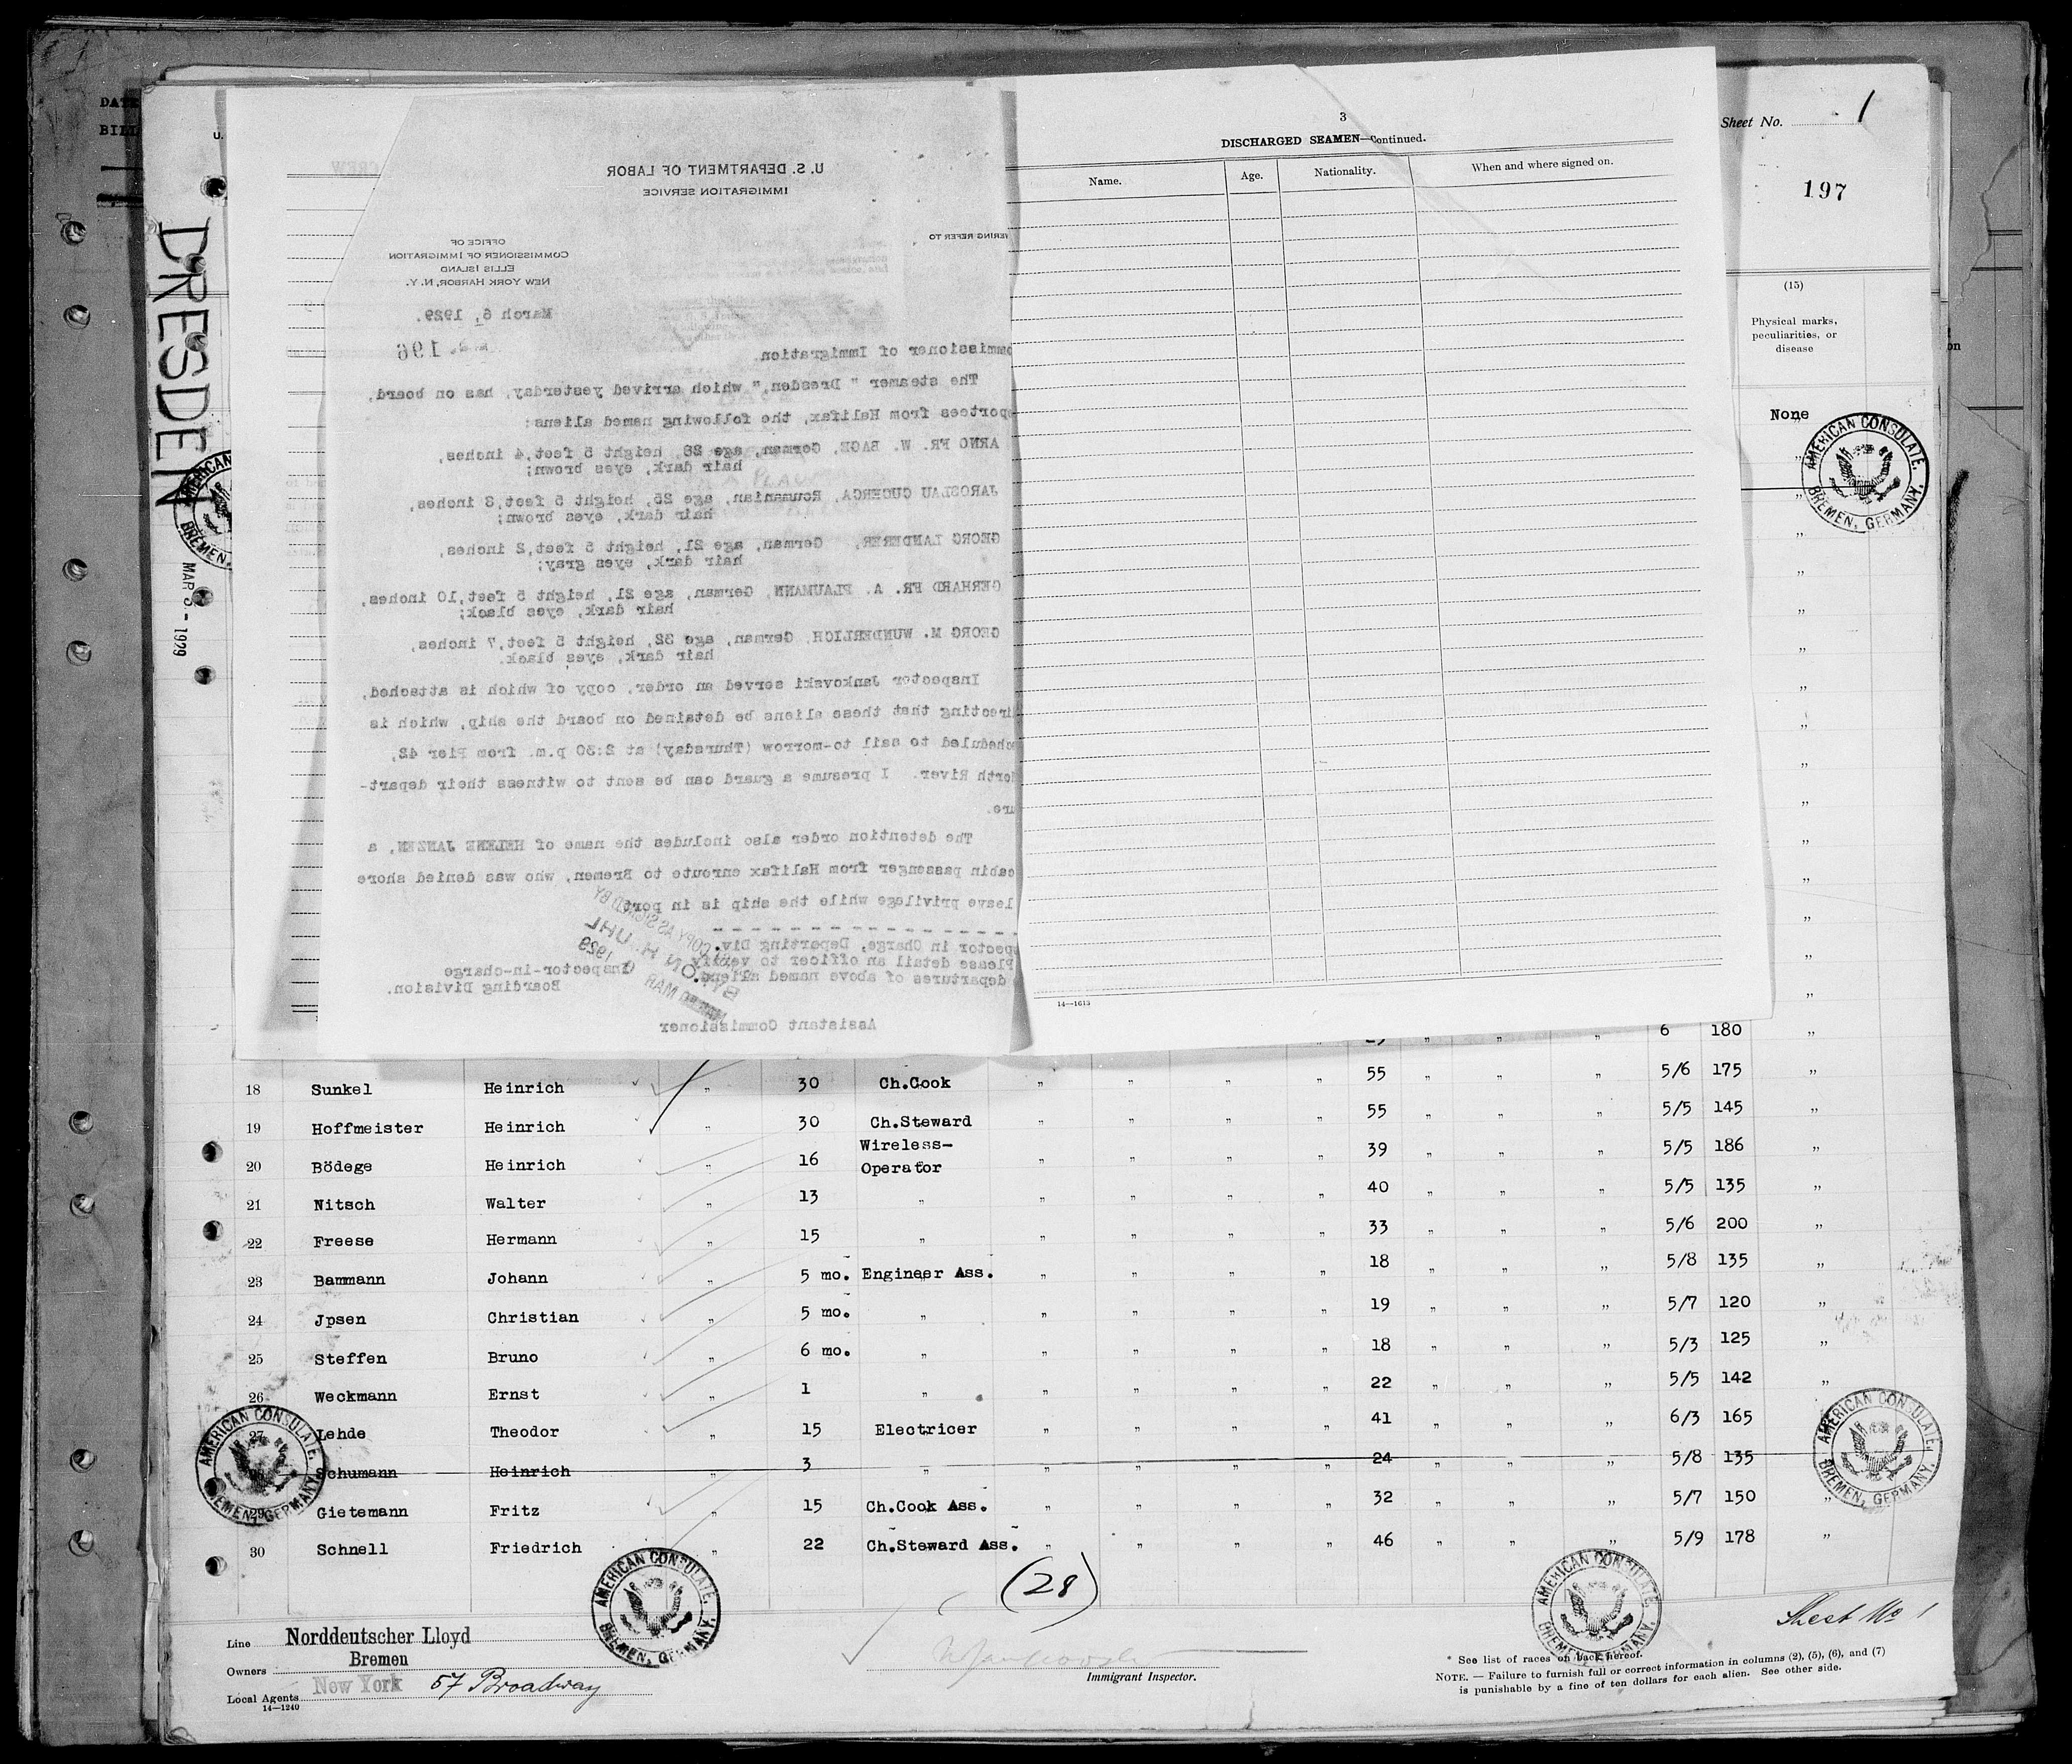 DATE
BILL
U.
DRESDEN
MAR 5 - 1929
Sheet No. 1
197
(15)
Physical marks,
peculiarities, or
disease
None
U. S. DEPARTMENT OF LABOR
IMMIGRATION SERVICE
OFFICE OF
COMMISSIONER OF IMMIGRATION
ELLIS ISLAND
NEW YORK HARBOR, N. Y.
ERING REFER TO
March 6, 1929.
196
ommissioner of Immigration.
The steamer " Dresden," which arrived yesterday, has on board,
portees from Halifax, the following named aliens:
ARNO FR. W. BAGE, German, age 26, height 5 feet,4 inches,
hair dark, eyes brown;
JAROSLAU CUCERCA, Roumanian, age 25, height 5 feet,3 inches,
hair dark, eyes brown;
GEORG LANDERER, German, age 21, height 5 feet,2 inches,
hair dark, eyes gray;
GERHARD FR. A. PLAUMANN, German, age 21, height 5 feet,10 inches,
hair dark, eyes black;
GEORG M. WUNDERLICH, German, age 32, height 5 feet,7 inches,
hair dark, eyes black.
Inspector Jankovski served an order, copy of which is attached,
irecting that these aliens be detained on board the ship, which is
cheduled to sail to-morrow (Thursday) at 2:30 p.m. from Pier 42,
orth River. I presume a guard can be sent to witness their depart-
ure.
The detention order also includes the name of HELENE JANZEN, a
cabin passenger from Halifax enroute to Bremen, who was denied shore
leave privilege while the ship is in port.
pector in Charge, Deporting Div.
Please detail an officer to verify
departures of above named aliens.
COPY AS SIGNED BY
BYRON H. UHL
MAR 6 1929
Inspector-in-charge
Boarding Division.
Assistant Commissioner
3
DISCHARGED SEAMEN—Continued.
Name. Age. Nationality. When and where signed on.
14—1613
6 180 "
18 Sunkel Heinrich " 30 Ch.Cook " " " " 55 " " " 5/6 175 "
19 Hoffmeister Heinrich " 30 Ch.Steward " " " " 55 " " " 5/5 145 "
20 Bödege Heinrich " 16 Wireless-Operator " " " " 39 " " " 5/5 186 "
21 Nitsch Walter " 13 " " " " " 40 " " " 5/5 135 "
22 Freese Hermann " 15 " " " " " 33 " " " 5/6 200 "
23 Bammann Johann " 5 mo. Engineer Ass. " " " " 18 " " " 5/8 135 "
24 Jpsen Christian " 5 mo. " " " " " 19 " " " 5/7 120 "
25 Steffen Bruno " 6 mo. " " " " " 18 " " " 5/3 125 "
26 Weckmann Ernst " 1 " " " " " 22 " " " 5/5 142 "
27 Lehde Theodor " 15 Electricer " " " " 41 " " " 6/3 165 "
28 Schumann Heinrich " 3 " " " " " 24 " " " 5/8 135 "
29 Gietemann Fritz " 15 Ch.Cook Ass. " " " " 32 " " " 5/7 150 "
30 Schnell Friedrich " 22 Ch.Steward Ass. " " " " 46 " " " 5/9 178 "
(28)
AMERICAN CONSULATE.
BREMEN, GERMANY.
AMERICAN CONSULATE.
BREMEN, GERMANY.
AMERICAN CONSULATE.
BREMEN, GERMANY.
AMERICAN CONSULATE.
BREMEN, GERMANY.
AMERICAN CONSULATE.
BREMEN, GERMANY.
Line Norddeutscher Lloyd
Owners Bremen
Local Agents New York 57 Broadway
14—1240
Immigrant Inspector.
Sheet No 1
* See list of races on back hereof.
NOTE. — Failure to furnish full or correct information in columns (2), (5), (6), and (7)
is punishable by a fine of ten dollars for each alien. See other side.